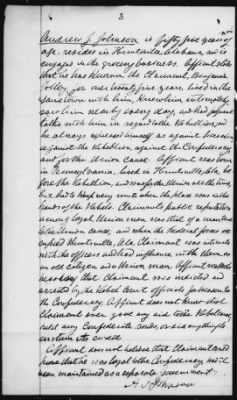 3
Andrew J. Johnson is fifty five years of
age. resides in Huntsville, Alabama, and is
engaged in the grocery business. Affiant states
that he has known the Claimant, Benjamin
Jolley, for over twenty five years, lived in the
same town with him, knew him intimately
saw him nearly every day, and had
talks with him in regard to the Rebellion, and
he always expressed himself as against Secession
against the Rebellion, against the Confederacy
and for the Union Cause. Affiant was born
in Pennsylvania, lived in Huntsville, Ala, be
fore the Rebellion, and was for the Union all the time,
but had to keep very mute when the place was in the
hands of the Rebels. Claimant's public reputation
among loyal Union men was that of a
Union cause, and when the Federal forces oc
cupied Huntsville, Ala. Claimant was intimate
with the officers and had influence with them as
an old citizen and Union man. Affiant
that Claimant was molested and
arrested by the Rebel Court officials for treason to
the Confederacy. Affiant does not know that
Claimant ever gave any aid to the Rebellion,
held any Confederate bonds, or did anything to
sustain its credit.
Affiant does not believe that Claimant could
prove that he was loyal to the Confederacy, had it
been maintained as a separate government.
A J Johnson